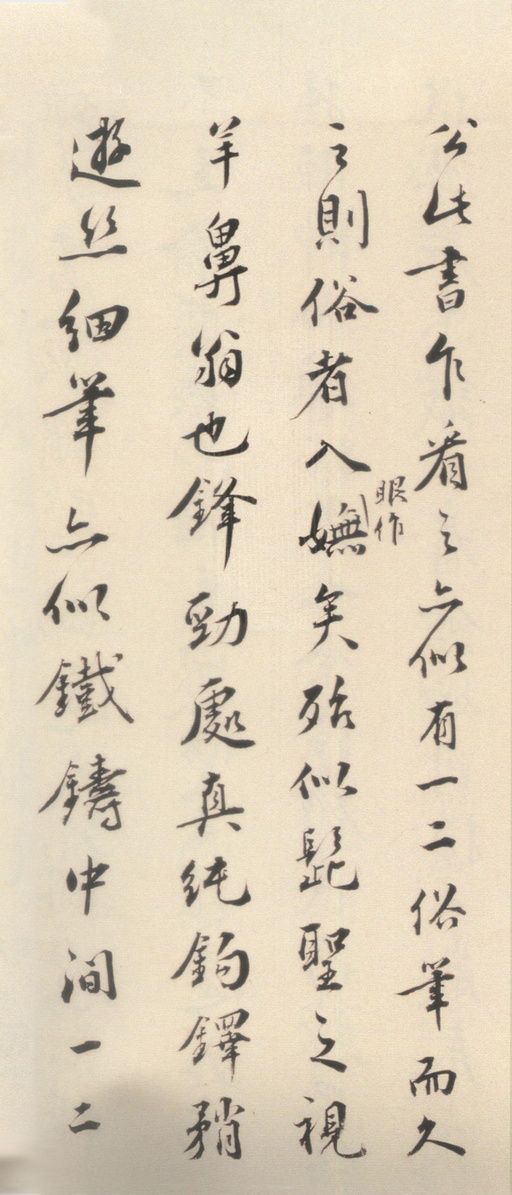 公此書乍看之亦似有一二俗筆而久
之則俗者入嫵眼作矣殆似髭聖之視
羊鼻翁也鋒勁處真純鉤鐸矟
遊絲細筆亦似鐵鑄中間一二